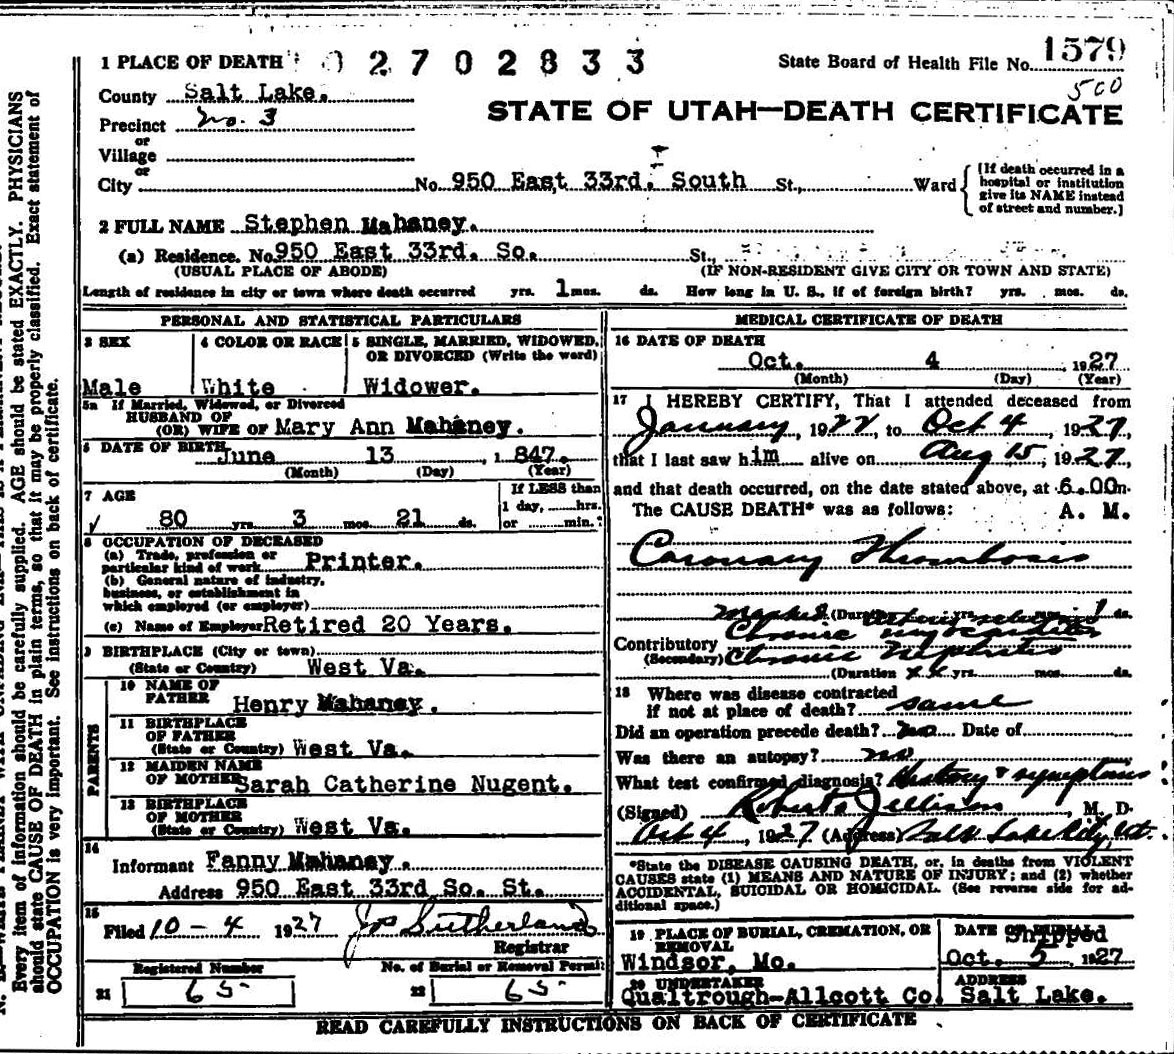 1 PLACE OF DEATH 0 2 7 0 2 8 3 3 State Board of Health File No. 1579
County Salt Lake. 500
STATE OF UTAH—DEATH CERTIFICATE
Precinct No. 3
or
Village
or
City No. 950 East 33rd. South St., Ward
[If death occurred in a
hospital or institution
give its NAME instead
of street and number.]
2 FULL NAME Stephen Mahaney.
(a) Residence. No. 950 East 33rd. So. St.,
(USUAL PLACE OF ABODE) (IF NON-RESIDENT GIVE CITY OR TOWN AND STATE)
Length of residence in city or town where death occurred yrs. 1 mos. ds. How long in U. S., if of foreign birth? yrs. mos. ds.
PERSONAL AND STATISTICAL PARTICULARS
3 SEX
Male
4 COLOR OR RACE
White
5 SINGLE, MARRIED, WIDOWED,
OR DIVORCED (Write the word)
Widower.
5a If Married, Widowed, or Divorced
HUSBAND OF
(OR) WIFE OF Mary Ann Mahaney.
6 DATE OF BIRTH June 13 , 1 847.
(Month) (Day) (Year)
7 AGE
80 yrs. 3 mos. 21 ds.
If LESS than
1 day, hrs.
or min.?
8 OCCUPATION OF DECEASED
(a) Trade, profession or
particular kind of work Printer.
(b) General nature of industry,
business, or establishment in
which employed (or employer)
(c) Name of Employer Retired 20 Years.
9 BIRTHPLACE (City or town)
(State or Country) West Va.
PARENTS
10 NAME OF
FATHER Henry Mahaney.
11 BIRTHPLACE
OF FATHER
(State or Country) West Va.
12 MAIDEN NAME
OF MOTHER Sarah Catherine Nugent.
13 BIRTHPLACE
OF MOTHER
(State or Country) West Va.
14
Informant Fanny Mahaney.
Address 950 East 33rd So. St.
15
Filed 10 - 4 1927 Jos Sutherland
Registrar
Registered Number No. of Burial or Removal Permit
21 65 22 65
MEDICAL CERTIFICATE OF DEATH
16 DATE OF DEATH
Oct. 4 , 1927
(Month) (Day) (Year)
17 I HEREBY CERTIFY, That I attended deceased from
January, 1922, to Oct 4, 1927,
that I last saw him alive on Aug 15, 1927,
and that death occurred, on the date stated above, at 6.00m.
The CAUSE DEATH* was as follows: A. M.
Coronary Thrombosis
(Duration yrs. mos. 1 ds.
Contributory Chronic myocarditis
(Secondary) Chronic Nephritis
(Duration yrs. mos. ds.
18 Where was disease contracted
if not at place of death? same
Did an operation precede death? no Date of
Was there an autopsy? no
What test confirmed diagnosis? History & symptoms
(Signed) Jellison, M. D.
Oct 4, 1927 (Address) Salt Lake City, Ut.
*State the DISEASE CAUSING DEATH, or, in deaths from VIOLENT
CAUSES state (1) MEANS AND NATURE OF INJURY; and (2) whether
ACCIDENTAL, SUICIDAL OR HOMICIDAL. (See reverse side for ad-
ditional space.)
19 PLACE OF BURIAL, CREMATION, OR
REMOVAL
Windsor, Mo.
DATE Shipped
Oct. 5, 1927
20 UNDERTAKER
Qualtrough-Allcott Co.
ADDRESS
Salt Lake.
READ CAREFULLY INSTRUCTIONS ON BACK OF CERTIFICATE
Every item of information should be carefully supplied. AGE should be stated EXACTLY. PHYSICIANS
should state CAUSE OF DEATH in plain terms, so that it may be properly classified. Exact statement of
OCCUPATION is very important. See instructions on back of certificate.